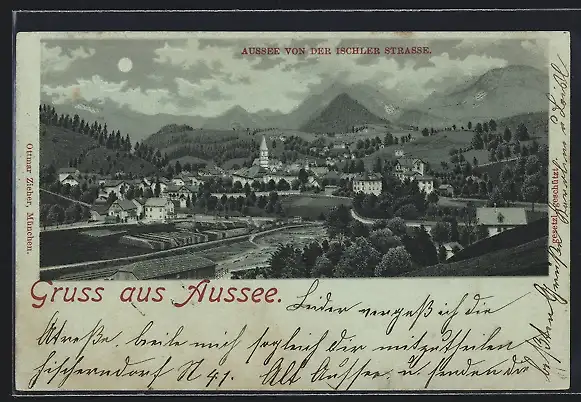 AUSSEE VON DER ISCHLER STRASSE.
Ottmar Zieher, München.
gesetzl. geschützt.
Gruss aus Aussee. Leider vergeß ich die
Straße, beile mich sogleich dir mitzutheilen
Fischerndorf N 41. Alt Aussee. u senden dir